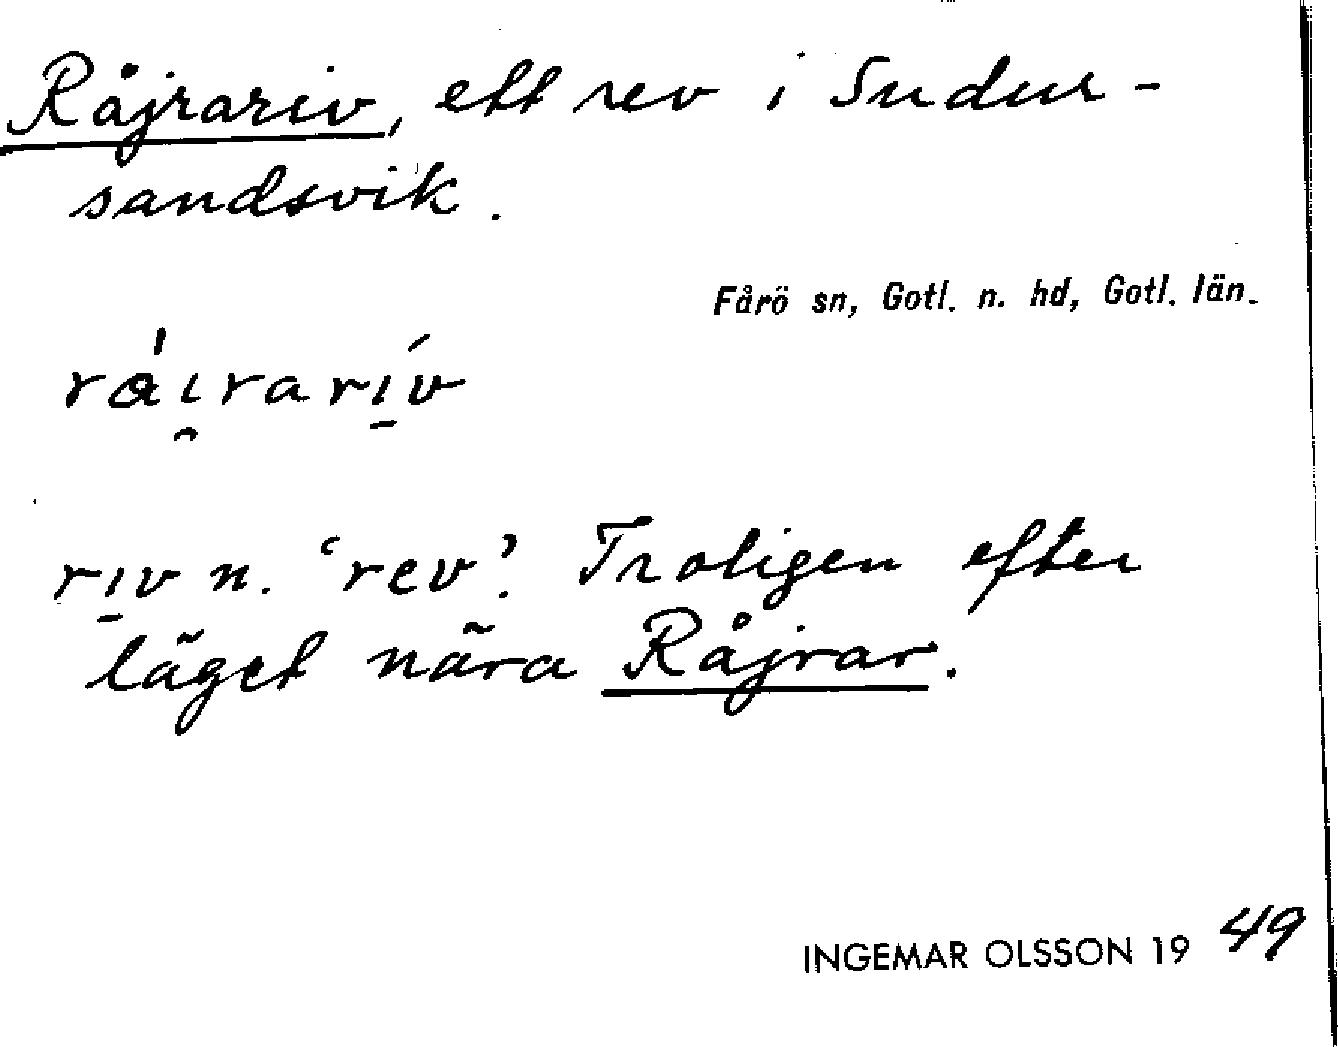 Råjrariv, ett rev i Sudur-
sandsvik.
Fårö sn, Gotl. n. hd, Gotl. län.
rɑ̍ı̯rarı̱́v
rı̱v n. ‘rev’. Troligen efter
läget nära Råjrar.
INGEMAR OLSSON 1949